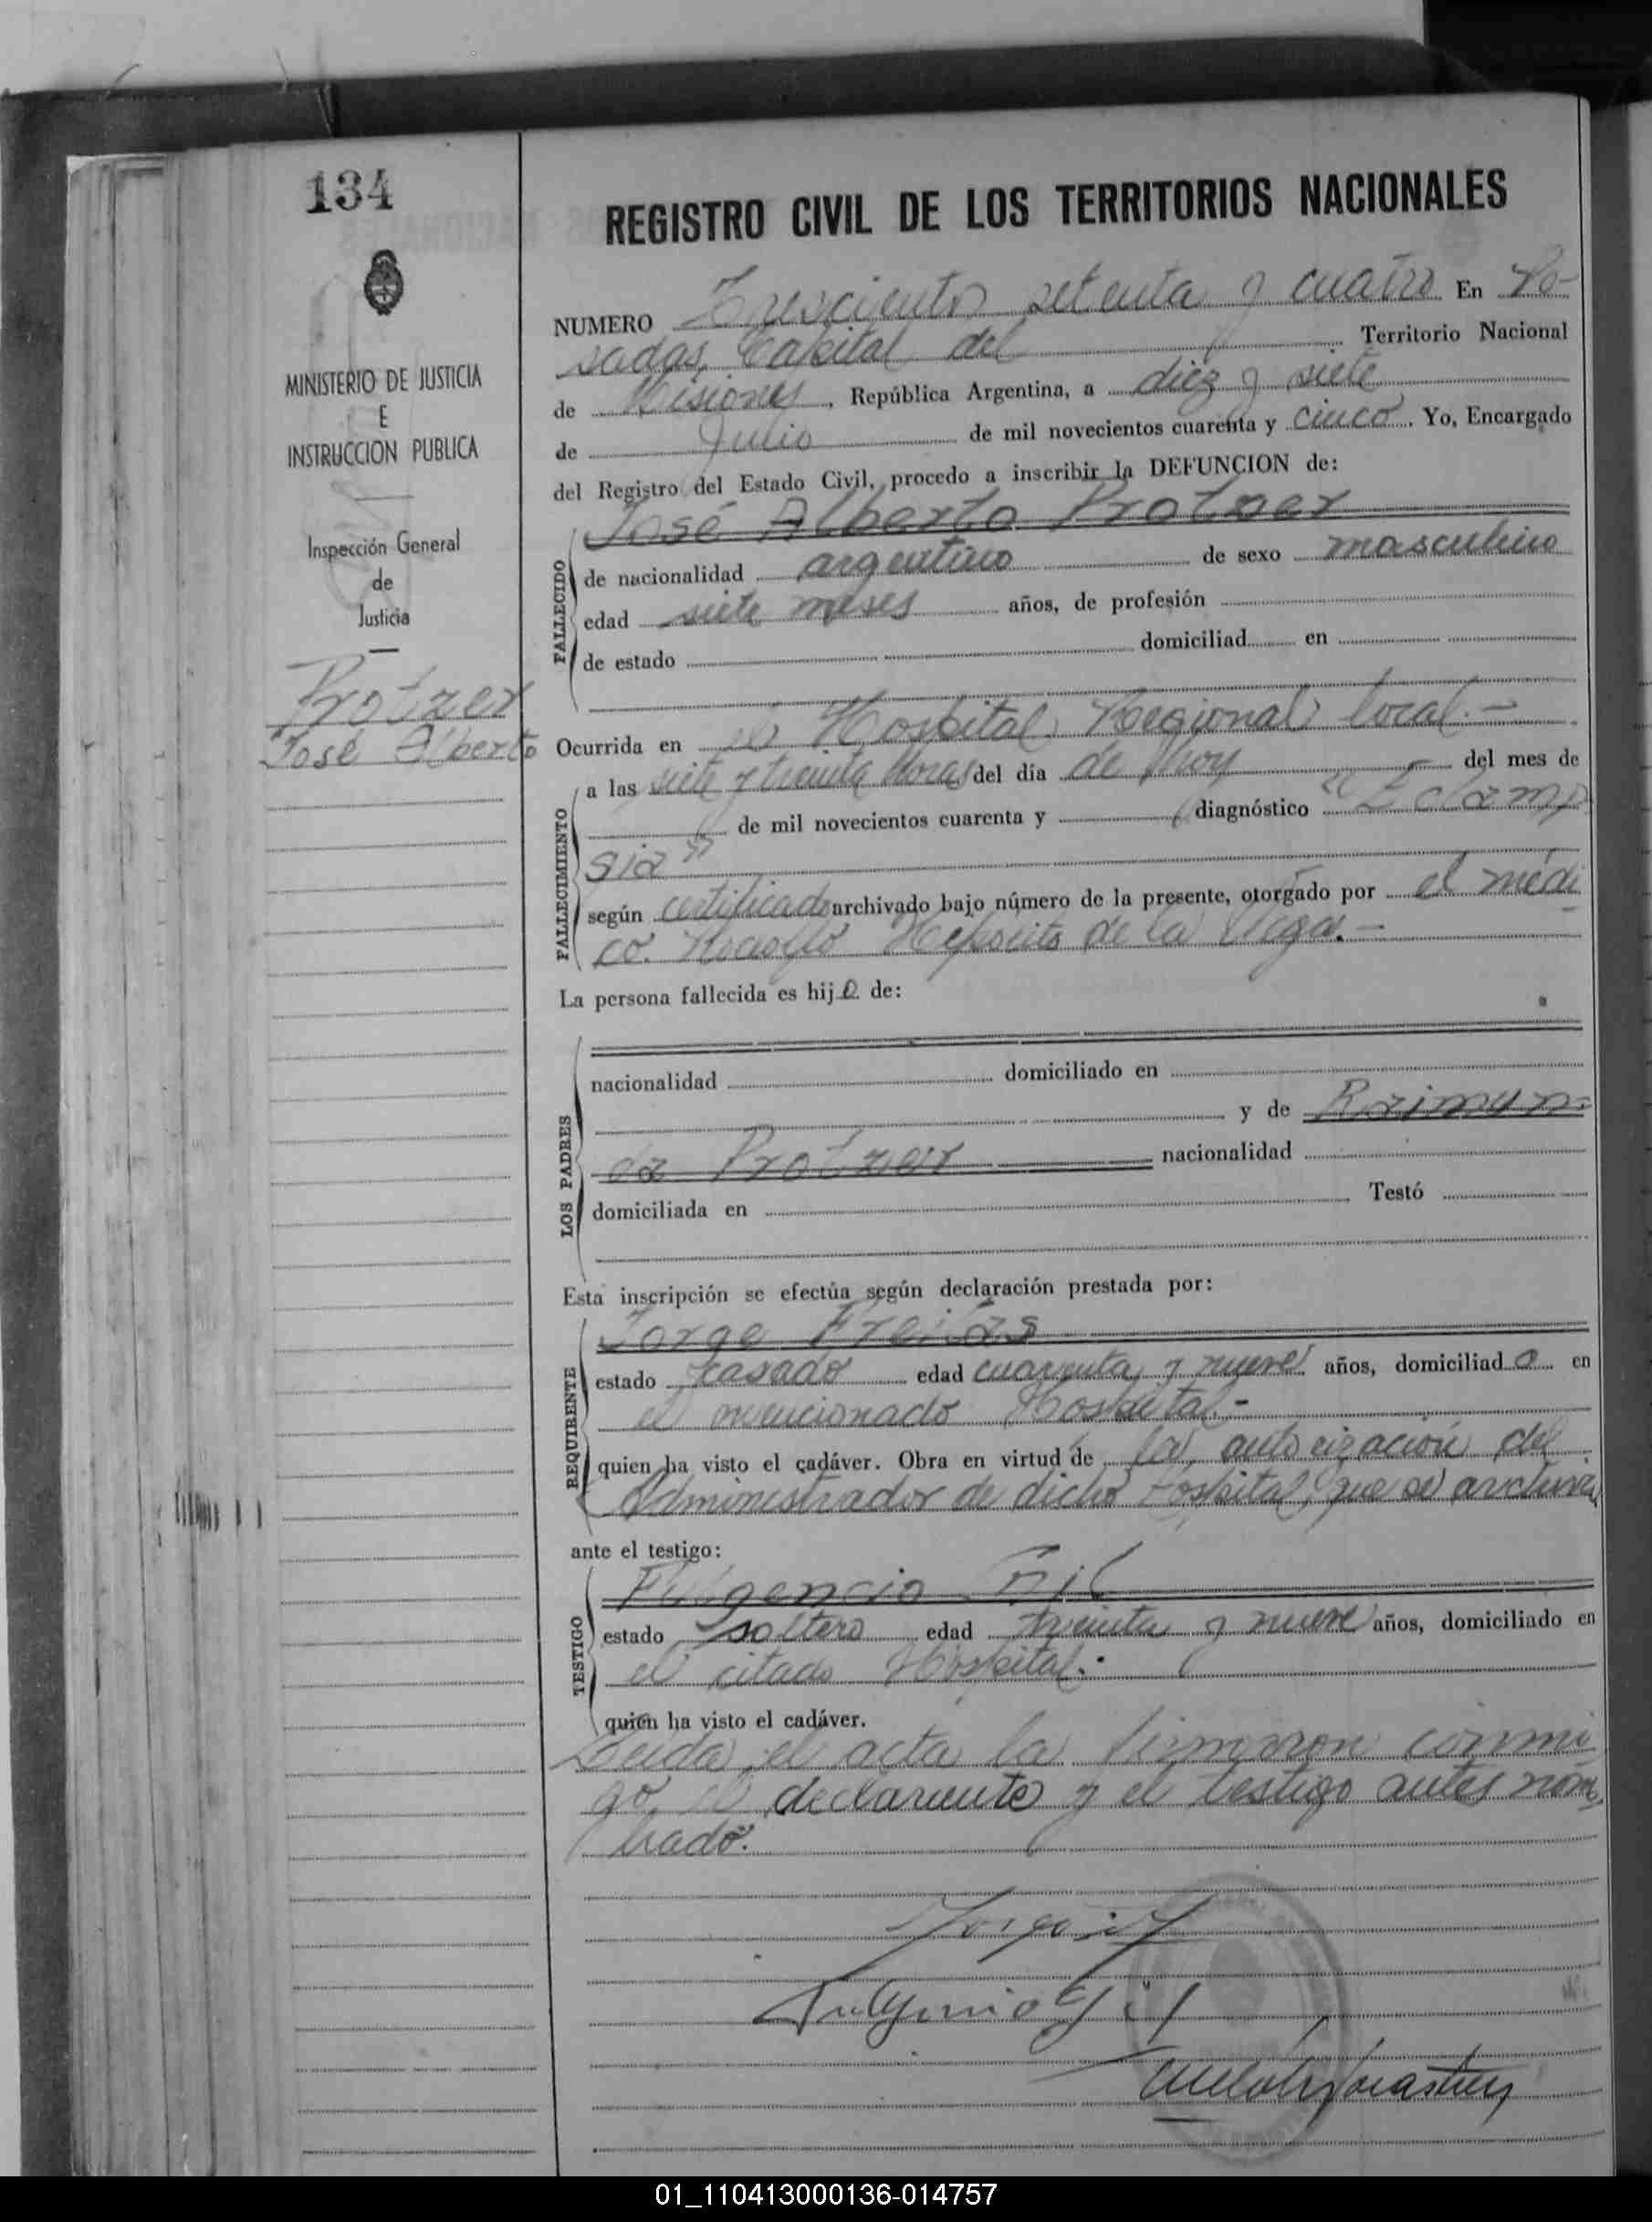 134
MINISTERIO DE JUSTICIA
E
INSTRUCCION PUBLICA
Inspección General
de
Justicia
Protzer
José Alberto
REGISTRO CIVIL DE LOS TERRITORIOS NACIONALES
NUMERO Trescientos setenta y cuatro En Po-
sadas, Capital del Territorio Nacional
de Misiones, República Argentina, a diez y siete
de Julio de mil novecientos cuarenta y cinco. Yo, Encargado
del Registro del Estado Civil, procedo a inscribir la DEFUNCION de:
José Alberto Protzer
FALLECIDO
de nacionalidad argentino de sexo masculino
edad siete meses años, de profesión
de estado domiciliad en
Ocurrida en el Hospital Regional local.-
FALLECIMIENTO
a las siete y treinta horas del día de hoy del mes de
de mil novecientos cuarenta y diagnóstico "Eclamp
sia"
según certificado archivado bajo número de la presente, otorgado por el médi
co. de la Vega.-
La persona fallecida es hijo de:
LOS PADRES
nacionalidad domiciliado en
y de Raimun-
da Protzer nacionalidad
domiciliada en Testó
Esta inscripción se efectúa según declaración prestada por:
REQUIRENTE
Jorge Freitas
estado casado edad cuarenta y nueve años, domiciliado en
el mencionado Hospital.-
quien ha visto el cadáver. Obra en virtud de la autorización del
Administrador de dicho Hospital, que se archiva
ante el testigo:
TESTIGO
Fulgencio Gil
estado soltero edad treinta y nueve años, domiciliado en
el citado Hospital.-
quien ha visto el cadáver.
Leida el acta la firmaron conmi
go el declarante y el testigo antes nom
brado.
Fulgencio Gil
01_110413000136-014757